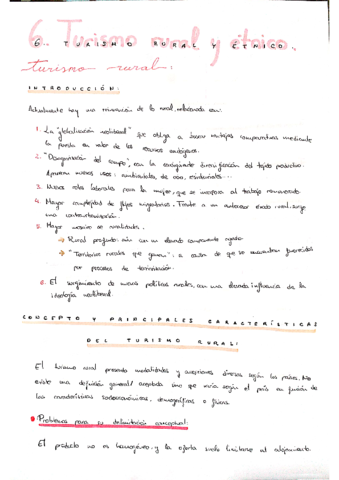 6. Turismo rural y étnico.
6. TURISMO RURAL Y ÉTNICO.
turismo rural:
INTRODUCCIÓN:
Actualmente hay una revaloración de lo rural, relacionado con:
1. La "globalización neoliberal" que obliga a buscar ventajas comparativas mediante
la puesta en valor de los recursos endógenos.
2. "Desagrarización del campo", con la consiguiente diversificación del tejido productivo.
Aparecen nuevos usos: residenciales, de ocio, industriales...
3. Nuevos roles laborales para la mujer, que se incorpora al trabajo remunerado.
4. Mayor complejidad de flujos migratorios. Frente a un anterior éxodo rural, surge
una
5. Mayor de ruralidades.
→ Rural profundo: aún con un elevado componente agrario
→ "Territorios rurales que ganan": a causa de que se encuentran favorecidos
por procesos de
6. El surgimiento de nuevas políticas rurales, con una elevada influencia de la
ideología neoliberal.
CONCEPTO Y PRINCIPALES CARACTERÍSTICAS
DEL TURISMO RURAL:
El turismo rural presenta modalidades y acepciones diversas según los países. No
existe una definición general aceptada sino que varía según el país en función de
las características socioeconómicas, demográficas o físicas.
Problemas para su delimitación conceptual:
El producto no es homogéneo, y la oferta suele limitarse al alojamiento.